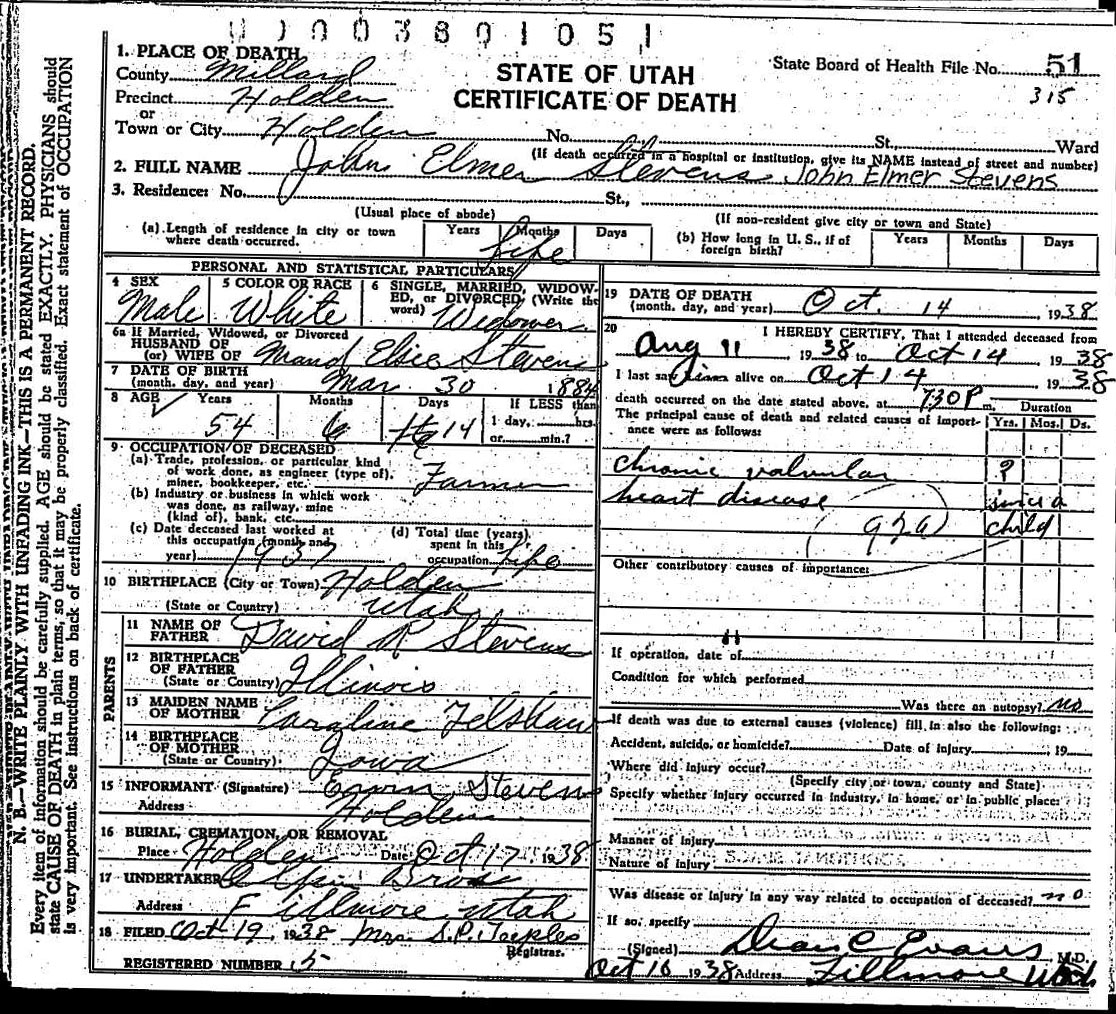 003801051
1. PLACE OF DEATH
County Millard
Precinct Holden
or
Town or City Holden No. St., Ward
STATE OF UTAH
CERTIFICATE OF DEATH
State Board of Health File No. 51
315
(If death occurred in a hospital or institution, give its NAME instead of street and number)
2. FULL NAME John Elmer Stevens John Elmer Stevens
3. Residence: No. St.,
(Usual place of abode) (If non-resident give city or town and State)
(a) Length of residence in city or town where death occurred. Years Months Days life
(b) How long in U. S., if of foreign birth? Years Months Days
PERSONAL AND STATISTICAL PARTICULARS
4 SEX Male
5 COLOR OR RACE White
6 SINGLE, MARRIED, WIDOWED, or DIVORCED (Write the word) Widower
6a If Married, Widowed, or Divorced
HUSBAND OF
(or) WIFE OF Maud Elsie Stevens
7 DATE OF BIRTH
(month, day, and year) Mar 30 1884
8 AGE Years Months Days If LESS than
54 6 14 1 day, hrs.
or min.?
9 OCCUPATION OF DECEASED
(a) Trade, profession, or particular kind
of work done, as engineer (type of),
miner, bookkeeper, etc. Farmer
(b) Industry or business in which work
was done, as railway, mine
(kind of), bank, etc.
(c) Date deceased last worked at
this occupation (month and
year) 1937
(d) Total time (years)
spent in this
occupation life
10 BIRTHPLACE (City or Town) Holden
(State or Country) Utah
PARENTS
11 NAME OF
FATHER David R Stevens
12 BIRTHPLACE
OF FATHER
(State or Country) Illinois
13 MAIDEN NAME
OF MOTHER Caroline Felshaw
14 BIRTHPLACE
OF MOTHER
(State or Country) Iowa
15 INFORMANT (Signature) Stevens
Address Holden
16 BURIAL, CREMATION, OR REMOVAL
Place Holden Date Oct 17 1938
17 UNDERTAKER Bros
Address Fillmore Utah
18 FILED Oct 19, 1938 Mrs. S.P. Teeples
Registrar.
REGISTERED NUMBER 5
19 DATE OF DEATH
(month, day, and year) Oct. 14, 1938
20 I HEREBY CERTIFY, That I attended deceased from
Aug 11 1938 to Oct 14 1938
I last saw him alive on Oct 14 1938
death occurred on the date stated above, at 730P m.
The principal cause of death and related causes of importance were as follows:
Duration
Yrs. Mos. Ds.
chronic valvular ?
heart disease since a
child
92a
Other contributory causes of importance:
If operation, date of
Condition for which performed
Was there an autopsy? no
If death was due to external causes (violence) fill in also the following:
Accident, suicide, or homicide? Date of injury 19
Where did injury occur?
(Specify city or town, county and State)
Specify whether injury occurred in industry, in home, or in public place:
Manner of injury
Nature of injury
Was disease or injury in any way related to occupation of deceased? no
If so, specify
(Signed) Dean C Evans, M.D.
Oct 16 1938 Address Fillmore Utah
N. B.—WRITE PLAINLY WITH UNFADING INK—THIS IS A PERMANENT RECORD.
Every item of information should be carefully supplied. AGE should be stated EXACTLY. PHYSICIANS should
state CAUSE OF DEATH in plain terms, so that it may be properly classified. Exact statement of OCCUPATION
is very important. See instructions on back of certificate.